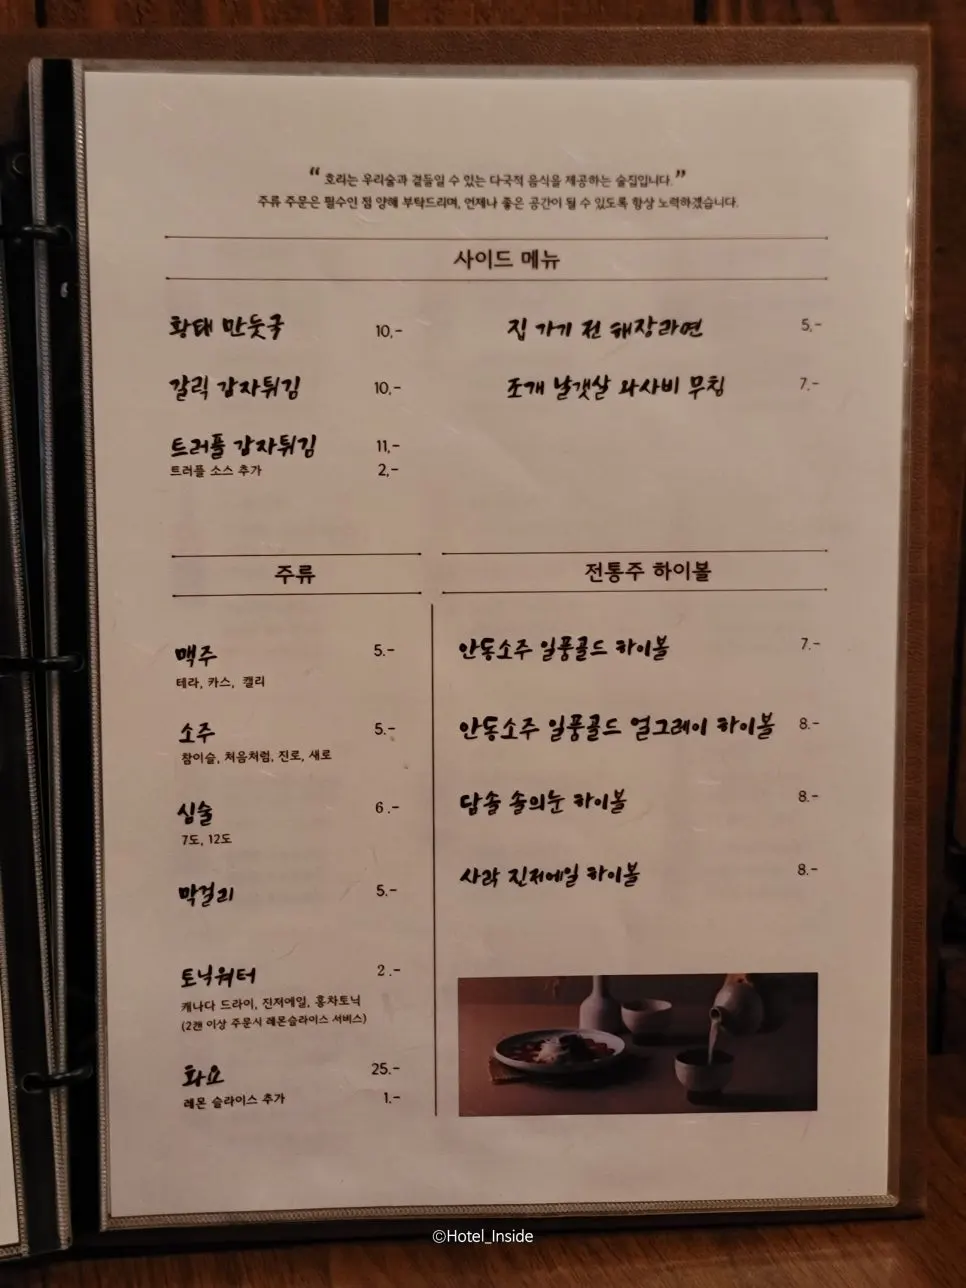 “ 호리는 우리술과 곁들일 수 있는 다국적 음식을 제공하는 술집입니다. ”
주류 주문은 필수인 점 양해 부탁드리며, 언제나 좋은 공간이 될 수 있도록 항상 노력하겠습니다.
사이드 메뉴
황태 만둣국 10,-
갈릭 감자튀김 10,-
트러플 감자튀김 11,-
트러플 소스 추가 2,-
집 가기 전 해장라면 5,-
조개 날갯살 와사비 무침 7,-
주류
맥주 5.-
테라, 카스, 켈리
소주 5.-
참이슬, 처음처럼, 진로, 새로
심술 6.-
7도, 12도
막걸리 5.-
토닉워터 2.-
캐나다 드라이, 진저에일, 홍차토닉
(2캔 이상 주문시 레몬슬라이스 서비스)
화요 25.-
레몬 슬라이스 추가 1.-
전통주 하이볼
안동소주 일품골드 하이볼 7.-
안동소주 일품골드 얼그레이 하이볼 8.-
담솔 솔의눈 하이볼 8.-
사락 진저에일 하이볼 8.-
©Hotel_Inside